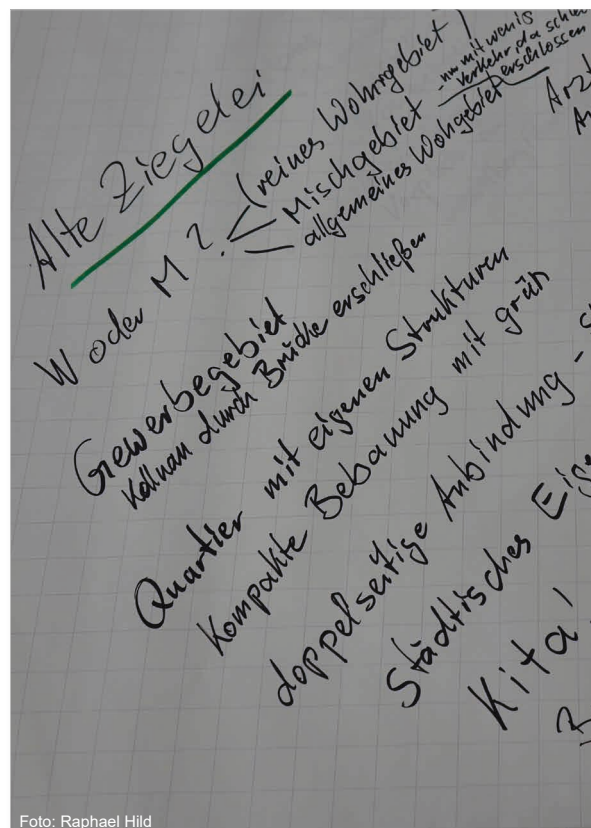 Alte Ziegelei
W oder M?
(reines Wohngebiet)
Mischgebiet
- nur mit wenig
Verkehr, da schle
erschlossen
allgemeines Wohngebiet
Arzt
Gewerbegebiet
Kallnau durch Brücke erschließen
Quartier mit eigenen Strukturen
Kompakte Bebauung mit grün
doppelseitige Anbindung - S
Städtisches Eige
Kita,
Foto: Raphael Hild